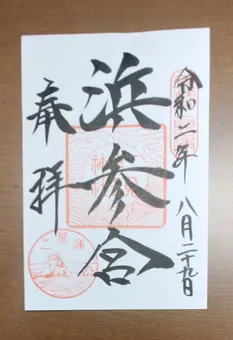 令和二年 八月二十九日
浜参宮
奉拝
二見浦